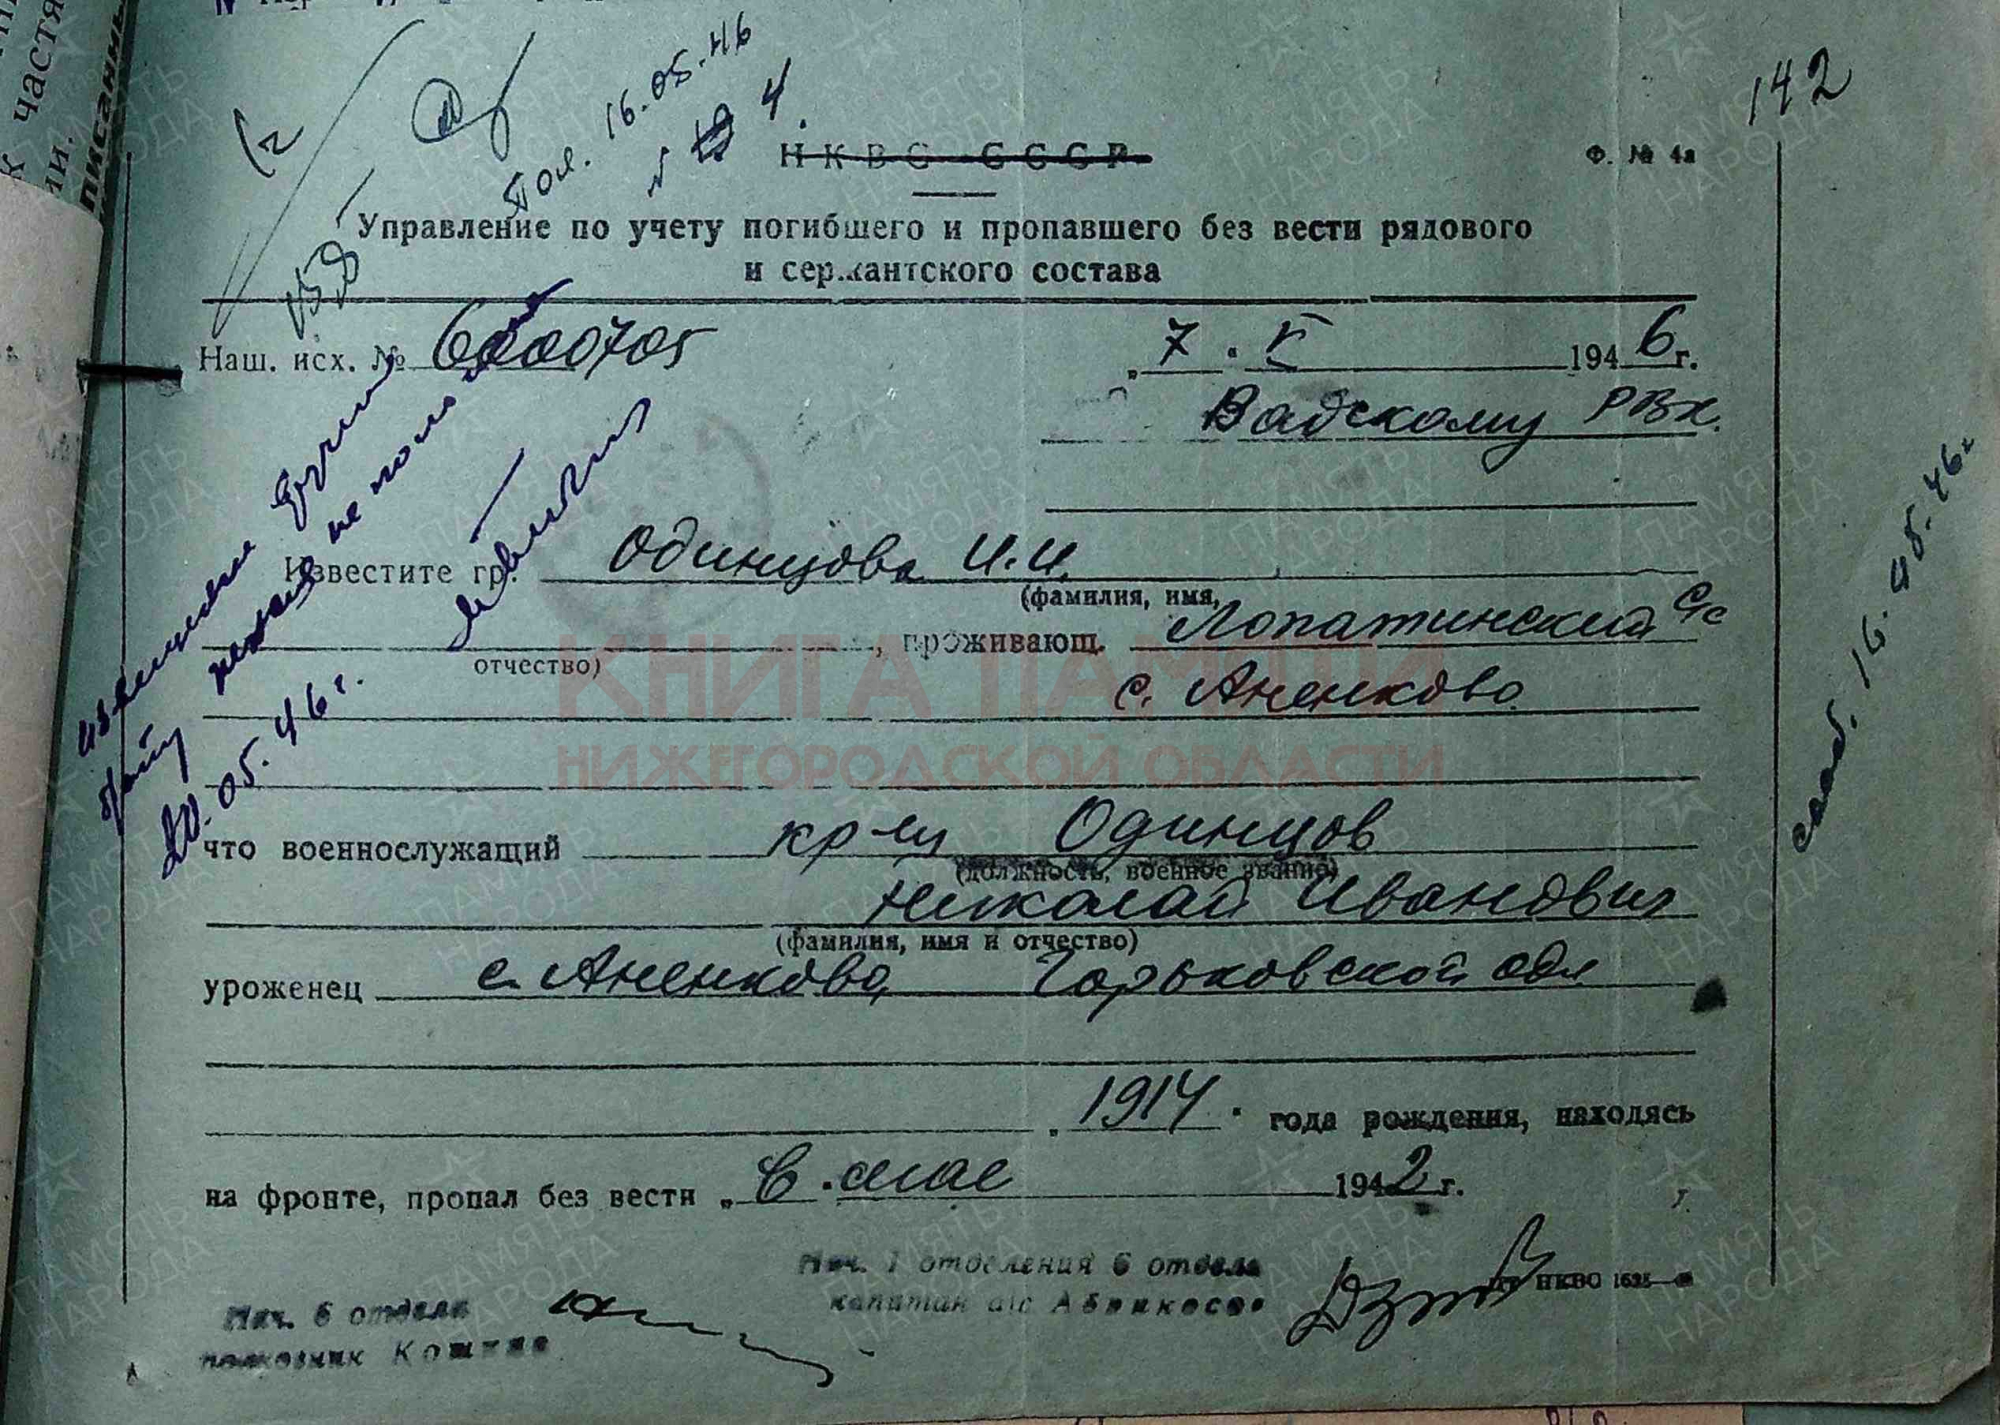 142
Пол. 16.05.46
№ 4.
Н К В С СССР
Ф. № 4а
Управление по учету погибшего и пропавшего без вести рядового
и сержантского состава
Наш. исх. № 6000705
„ 7 . V 1946 г.
Вадскому РВК.
Известите гр. Одинцова И.И.
(фамилия, имя,
отчество) , проживающ. Лопатинский с/с
с. Аненково
КНИГА ПАМЯТИ
НИЖЕГОРОДСКОЙ ОБЛАСТИ
что военнослужащий кр-ец Одинцов
(должность, военное звание)
Николай Иванович
(фамилия, имя и отчество)
уроженец с. Аненково, Горьковской обл
1914 . года рождения, находясь
на фронте, пропал без вести „ в . мае 1942 г.
Нач. 1 отделения 6 отдела
капитан а/с Абрикосов
Нач. 6 отдела
полковник
20.05.46 г.
сооб. 16.05.46 г.
ПАМЯТЬ
НАРОДА